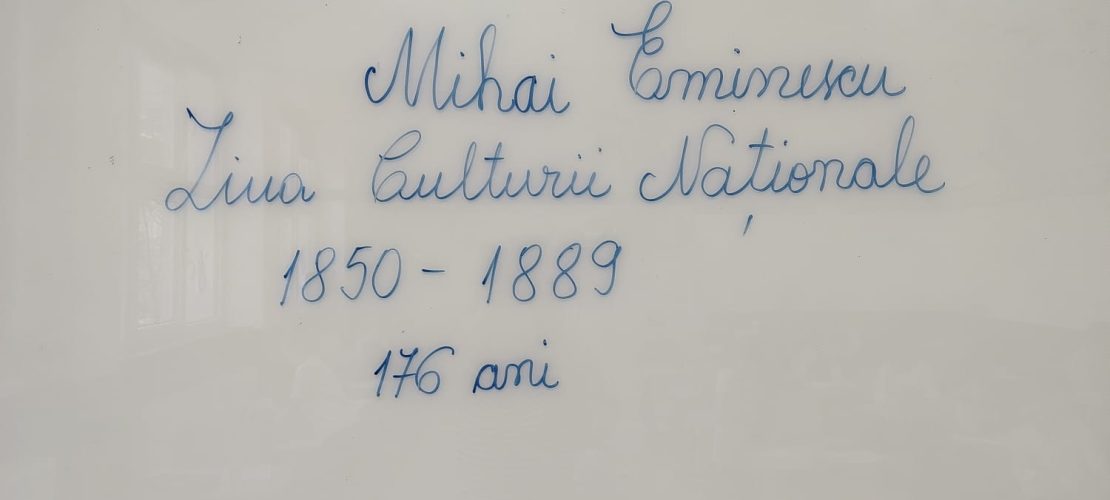 Mihai Eminescu
Ziua Culturii Naționale
1850 - 1889
176 ani